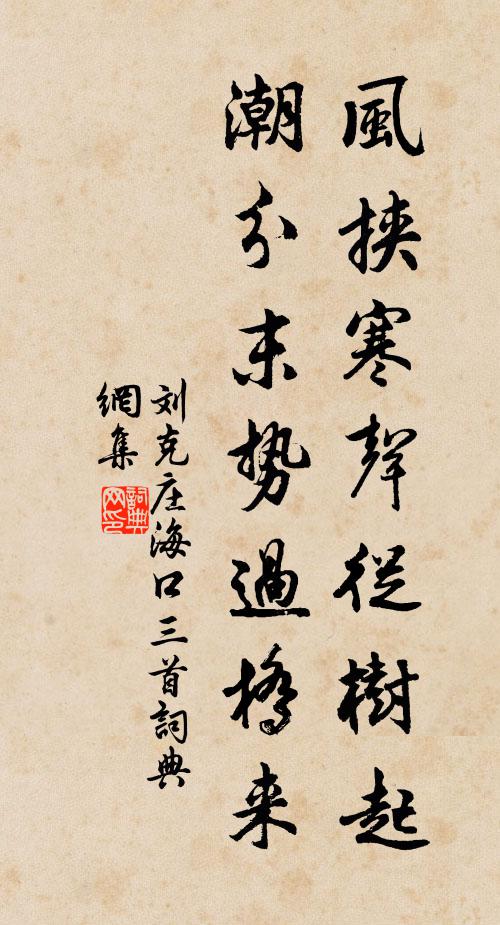 風挾寒聲從樹起
潮分末勢過橋来
刘克庄海口三首詞典
網集
詞典
网印